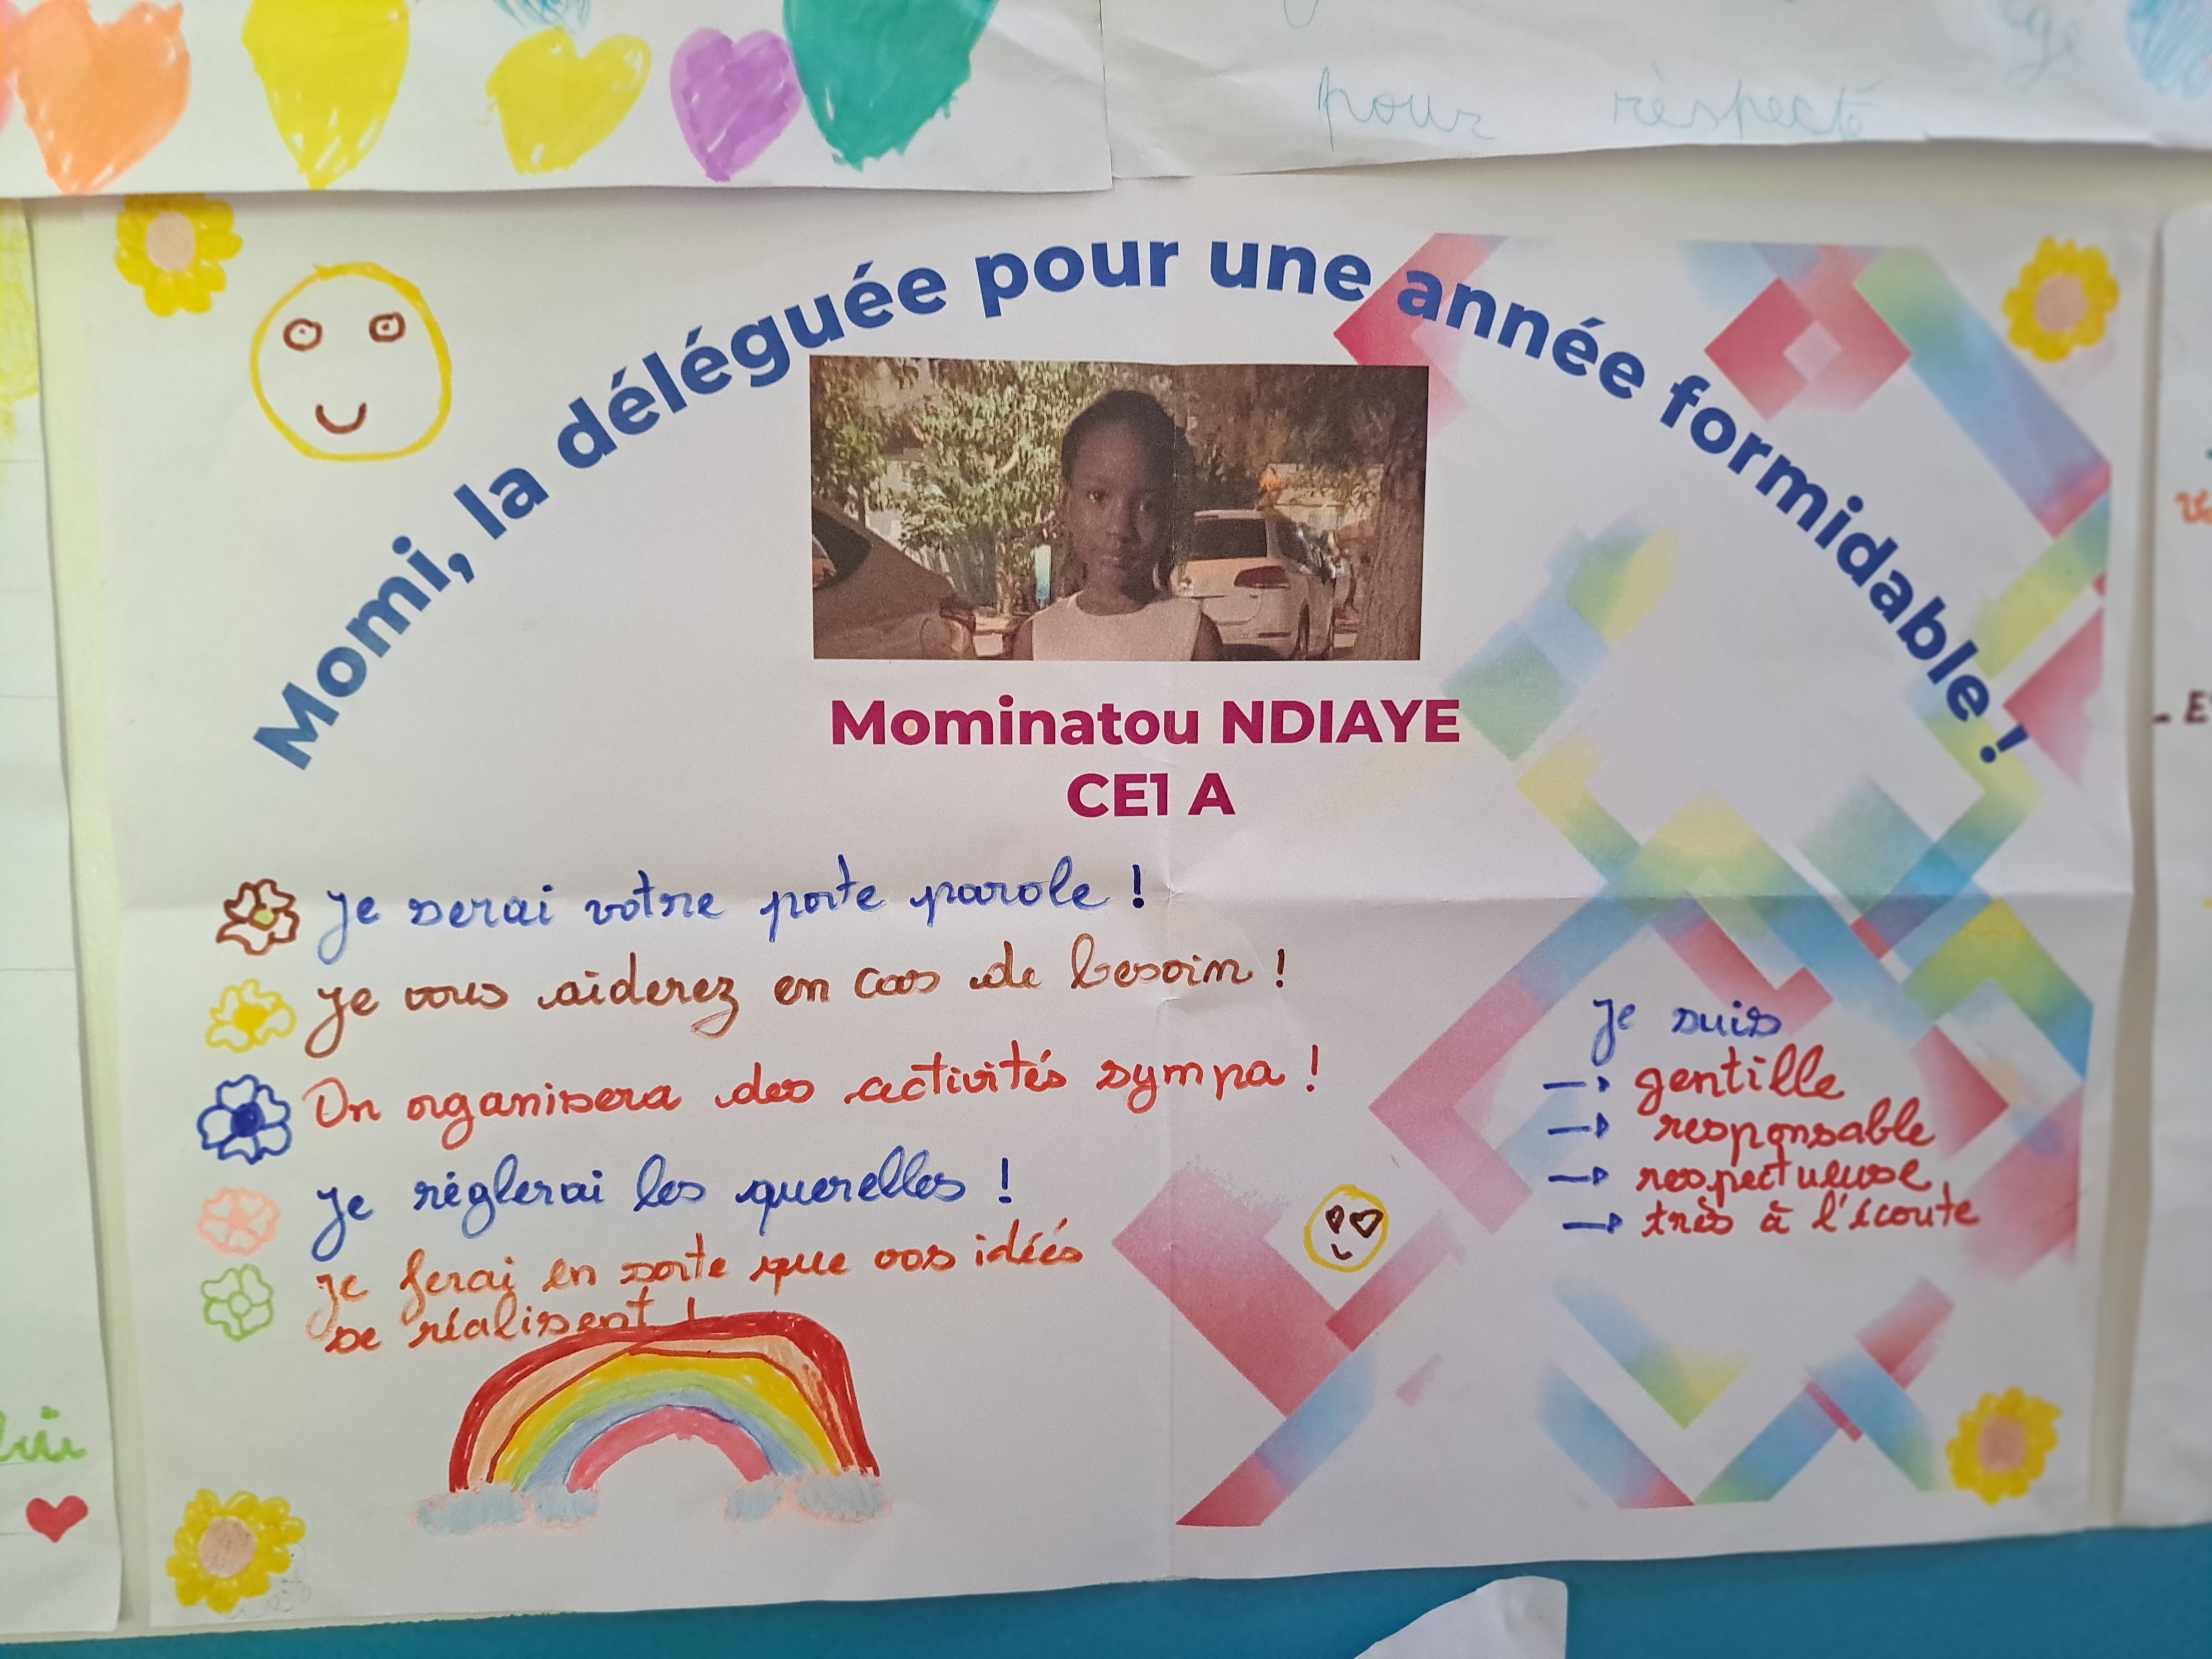 pour respecté
Momi, la déléguée pour une année formidable !
Mominatou NDIAYE
CE1 A
Je serai votre porte parole !
Je vous aiderez en cas de besoin !
On organisera des activités sympa !
Je réglerai les querelles !
Je ferai en sorte que vos idéés
se réalisent !
Je suis
→ gentille
→ responsable
→ respectueuse
→ très à l'écoute